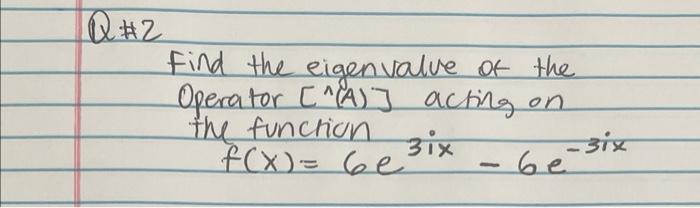 Q#2
Find the eigenvalue of the
Operator [^(A)] acting on
the function
f(x) = 6e^{3ix} - 6e^{-3ix}